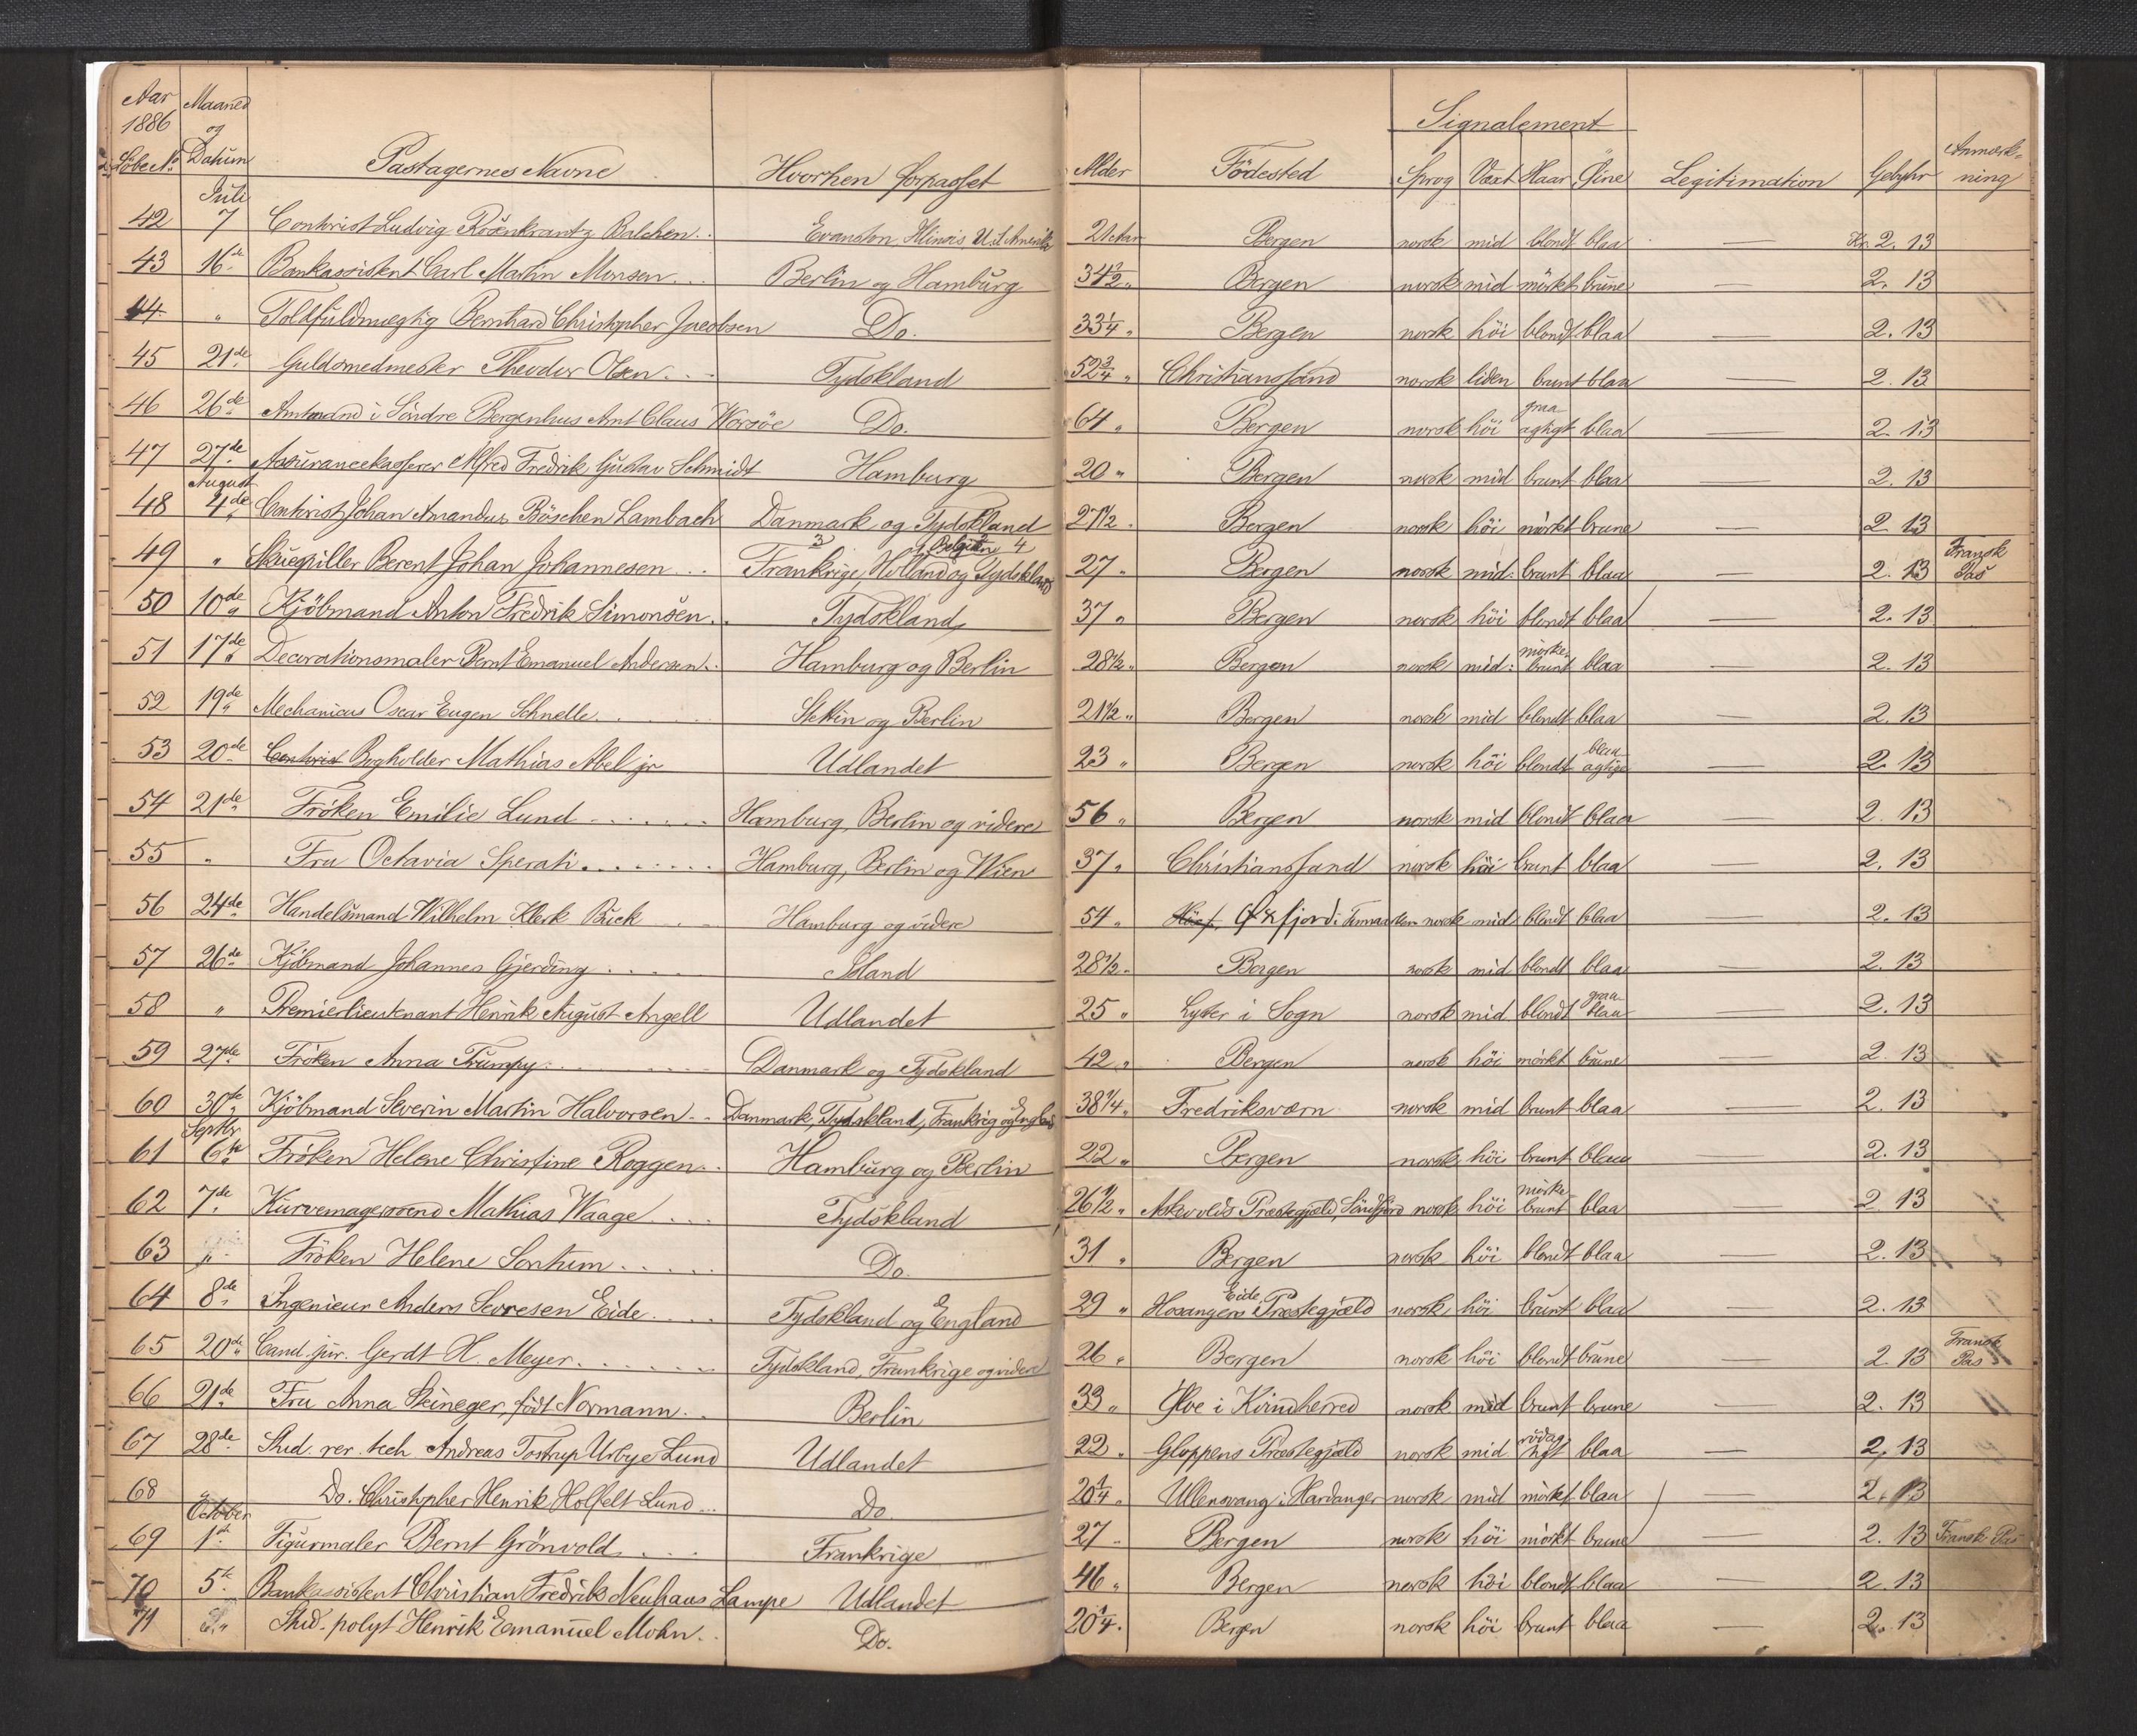 Aar 1886 Maaned og Datum
Signalement
Løbe No. Pastagernes Navne Hvorhen forpasset Alder Födested Sprog Vext Haar Öine Legitimation Gebyhr Anmærk=ning
Juli
42 7 Contorist Ludvig Rosenkrantz Balchen.. Evanston Illinois U.S. Amerika 21 Aar Bergen norsk mid blondt blaa — Kr. 2. 13
43 16de Bankassistent Carl Martin Monsen... Berlin og Hamburg 34 1/2 " Bergen norsk mid mörkt brune — 2. 13
44 " Toldfuldmægtig Bernhard Christopher Jacobsen Do. 33 1/4 " Bergen norsk höi blondt blaa — 2. 13
45 21de Guldsmedmester Theodor Olsen... Tydskland 52 3/4 " Christianssand norsk liden brunt blaa — 2. 13
46 26de Amtmand i Söndre Bergenhus Amt Claus Worsöe Do. 64 " Bergen norsk höi graaagtigt blaa — 2. 13
47 27de Assurancekasserer Alfred Fredrik Gustav Schmidt Hamburg 20 " Bergen norsk mid brunt blaa — 2. 13
August
48 4de Contorist Johan Amandus Böschen Lambach Danmark og Tydskland 27 1/2 " Bergen norsk höi mörkt brune — 2. 13
49 " Skuespiller Berent Johan Johannesen... Frankrige, Holland og Tydskland 3 Belgien 4 27 " Bergen norsk mid. brunt blaa — 2. 13 Fransk Pas
50 10de Kjöbmand Anton Fredrik Simonsen.. Tydskland 37 " Bergen norsk höi blondt blaa — 2. 13
51 17de Decorationsmaler Bernt Emanuel Andersen.. Hamburg og Berlin 28 1/2 " Bergen norsk mid: mörkebrunt blaa — 2. 13
52 19de Mechanicus Oscar Eugen Schnelle... Stettin og Berlin 21 1/2 " Bergen norsk mid blondt blaa — 2. 13
53 20de Contorist Bogholder Mathias Abel jr Udlandet 23 " Bergen norsk höi blondt blaaagtige — 2. 13
54 21de Fröken Emilie Lund ....... Hamburg, Berlin og videre 56 " Bergen norsk mid blondt blaa — 2. 13
55 " Fru Octavia Sperati........ Hamburg, Berlin og Wien 37 " Christianssand norsk höi brunt blaa — 2. 13
56 24de Handelsmand Wilhelm Klerk Buck .. Hamburg og videre 54 " Öxfjord i Finmarken norsk mid blondt blaa — 2. 13
57 26de Kjöbmand Johannes Gjerding..... Island 28 1/2 " Bergen norsk mid blondt blaa — 2. 13
58 " Premierlieutenant Henrik August Angell Udlandet 25 " Lyster i Sogn norsk mid blondt graablaa — 2. 13
59 27de Fröken Anna Trumpy....... Danmark og Tydskland 42 " Bergen norsk höi mörkt brune — 2. 13
60 30te Kjöbmand Severin Martin Halvorsen.. Danmark, Tydskland, Frankrig og England 38 1/4 " Fredriksværn norsk mid brunt blaa — 2. 13
Septbr
61 6te Fröken Helene Christine Roggen.. Hamburg og Berlin 22 " Bergen norsk höi brunt blaa — 2. 13
62 7de Kurvemagersvend Mathias Waage.... Tydskland 26 1/2 " Askvolds Præstegjæld, Söndfjord norsk höi mörkebrunt blaa — 2. 13
63 " Fröken Helene Sontum..... Do. 31 " Bergen norsk höi blondt blaa — 2. 13
64 8de Ingenieur Anders Sevresen Eide.... Tydskland og England 29 " Eide, Hosangers Præstegjæld norsk höi brunt blaa — 2. 13
65 20de Cand. jur. Gerdt H. Meyer....... Tydskland, Frankrige og videre 26 " Bergen norsk höi blondt brune — 2. 13 Fransk Pas
66 21de Fru Anna Steineger, född Normann.. Berlin 33 " Ölve i Kvindherred norsk mid brunt brune — 2. 13
67 28de Stud. rer. tech Andreas Tostrup Urbye Lund Udlandet 22 " Gloppens Præstegjæld norsk mid rödagtigt blaa — 2. 13
68 " Do. Christopher Henrik Holfelt Lund... Do. 20 1/4 " Ullensvang i Hardanger norsk mid mörkt blaa — 2. 13
October
69 1ste Figurmaler Bernt Grönvold.... Frankrige 27 " Bergen norsk höi mörkt brune — 2. 13 Fransk Pas
70 5te Bankassistent Christian Fredrik Neuhaus Lampe Udlandet 46 " Bergen norsk höi blondt blaa — 2. 13
71 Stud. polyt Henrik Emanuel Mohn.. Do. 20 1/4 " Bergen norsk höi brunt blaa — 2. 13